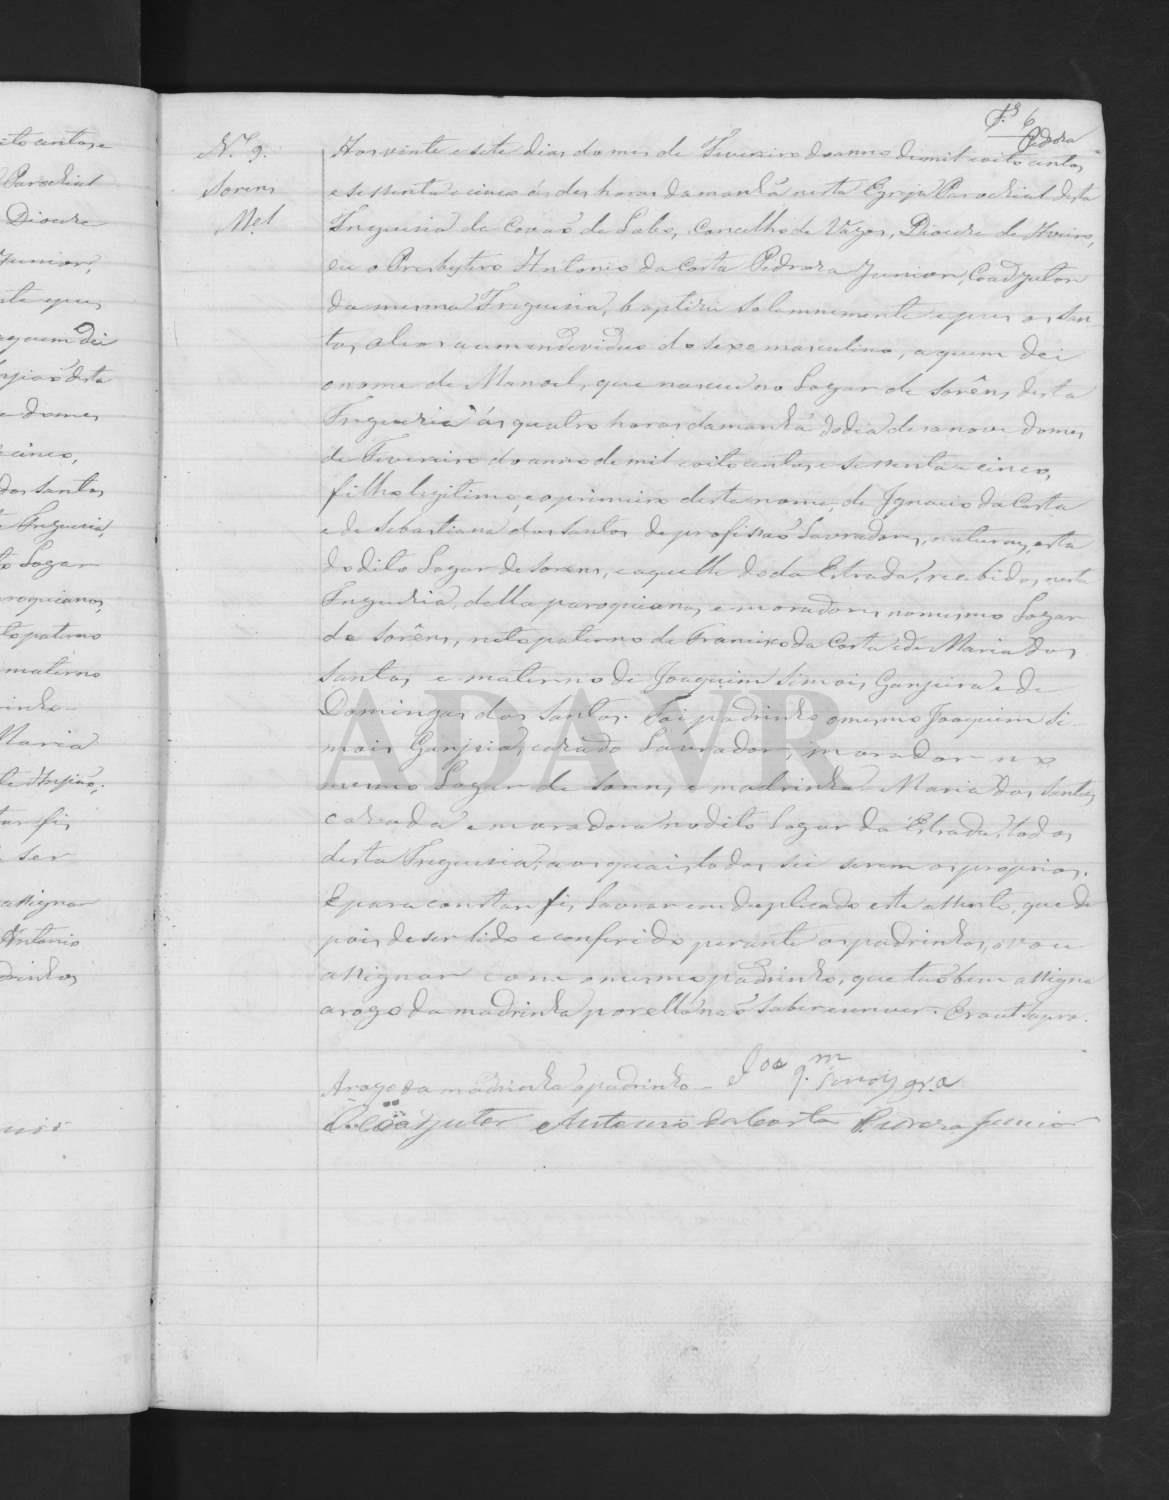 Fs 6
Pedroza
N.º 9.
Sorens
M.el
Aos vinte e sete dias do mes de Fevereiro do anno de mil oito centos
e sessenta e cinco ás des horas da manhã nesta Egreja Parochial desta
Freguesia de Covaõ do Lobo, Concelho de Vagos, Diocese de Aveiro,
eu o Presbytero Antonio da Costa Pedroza Junior, Coadjutor
da mesma Freguesia, baptizei solemnemente e pus os San
tos oleos a um endeviduo do sexo masculino, a quem dei
o nome de Manoel, que nasceu no Logar de Sorêns, desta
Freguezia ás quatro horas da manhã do dia desanove do mes
de Fevereiro do anno de mil e oito centos e sessenta e cinco,
filho legitimo, e o primeiro deste nome, de Ignacio da Costa
e de Sebastiana dos Santos de profissaõ Lavradores, naturaes, esta
do dito Logar de Sorens, e aquelle do da Estrada, recebidos nesta
Freguezia, della paroquianos, e moradores no mesmo Logar
de Sorêns, neto paterno de Francisco da Costa e de Maria dos
Santos e materno de Joaquim Simois Ganjeira e de
Domingas dos Santos. Foi padrinho o mesmo Joaquim Si
mois Ganjeia, cazado Lavrador, morador no
mesmo Logar de Sorens, e madrinha Maria dos Santos,
cazada e moradora no dito Logar da Estrada, todos
desta Freguesia, aos quais todos sei serem os proprios.
E para constar fis Lavrar em duplicado este assento, que de
pois de ser lido e conferido perante os padrinhos, o vou
assignar com o mesmo padrinho, que taõbem assigna
a rogo da madrinha por ella naõ saber escrever. Era ut supra.
A rogo da madrinha o padrinho – Joa q.m Simoiz gr.a
O Coadjutor Antonio da Costa Pedroza Junior
ADAVR